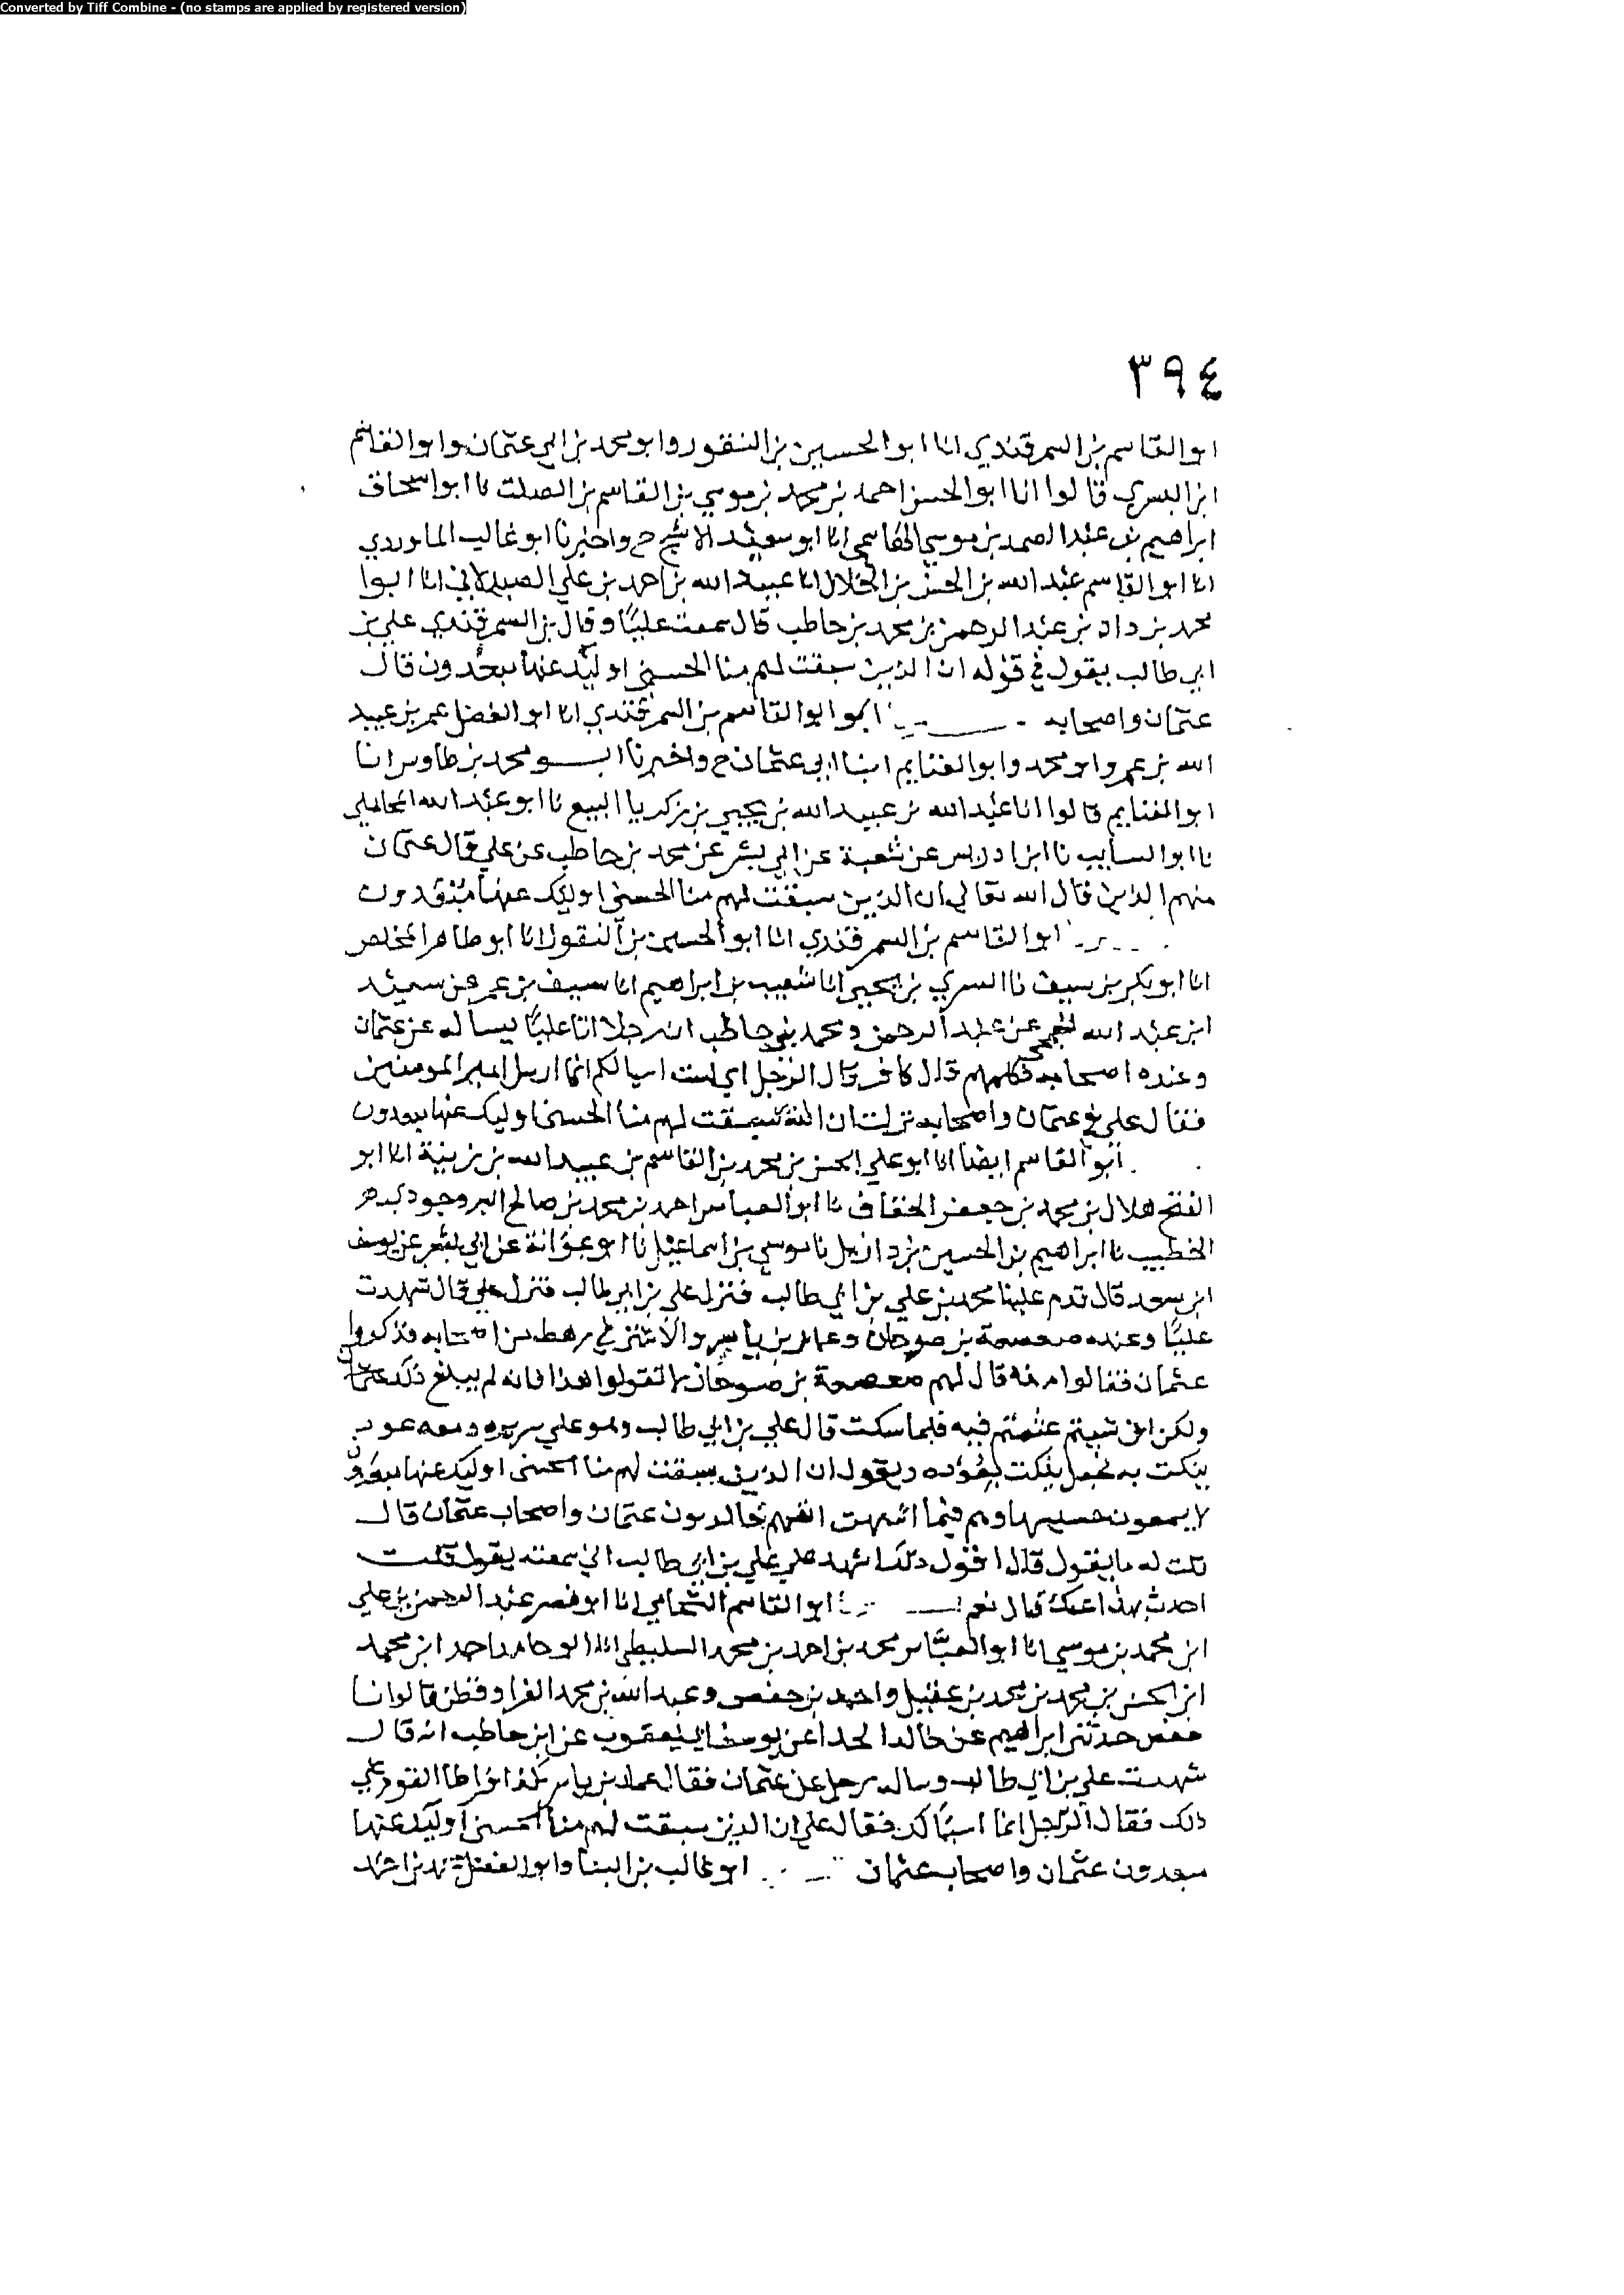 Converted by Tiff Combine - (no stamps are applied by registered version)
٣٩٤
ابو القاسم بن السمرقندي انا ابو الحسين بن النقور وابو محمد بن ابي عثمان وابو القاسم
ابن البسري قالوا انا ابو الحسن احمد بن محمد بن موسي بن القاسم بن الصلت نا ابو اسحاق
ابراهيم بن عبد الصمد بن موسي الهاشمي انا ابو سعيد الاشج ح واخبرنا ابو غالب الماوردي
انا ابو القاسم عبد الله بن الحسن بن الخلال انا عبيد الله بن احمد بن علي الصيدلاني انا ابوا
محمد بن داد بن عبد الرحمن بن محمد بن حاطب قال سمعت عليا وقال بن السمرقندي علي بن
ابي طالب يقول في قوله ان الذين سبقت لهم منا الحسني اوليك عنها مبعدون قال
عثمان واصحابه ابو القاسم بن السمرقندي انا ابو الفضل عمر بن عبيد
الله بن عمر وابو محمد وابو الغنايم ابنا ابي عثمان ح واخبرنا ابو محمد بن طاوس انا
ابو الغنايم قالوا انا عبد الله بن عبيد الله بن يحيي بن زكريا البيع نا ابو عبد الله المحاملي
نا ابو السايب نا ابن ادريس عن شعبة عن ابي بشر عن محمد بن حاطب عن علي قال عثمان
منهم الذين قال الله تعالي ان الذين سبقت لهم منا الحسني اوليك عنها مبعدون
ابو القاسم بن السمرقندي انا ابو الحسين بن النقور انا ابو طاهر المخلص
انا ابو بكر بن سيف نا السري بن يحيي انا شعيب بن ابراهيم انا سيف بن عمر عن سعيد
ابن عبد الله الجمحي عن عبد الرحمن ومحمد بني حاطب ان رجلا اتا عليا يساله عن عثمان
وعنده اصحابه فكلهم قال كافر قال الرجل اي لست اسالكم انما اسل امير المومنين
فقال علي في عثمان واصحابه نزلت ان الذين سبقت لهم منا الحسني اوليك عنها مبعدون
ابو القاسم ايضا انا ابو علي الحسن بن محمد بن القاسم بن عبيد الله بن زينة انا ابو
الفتح هلال بن محمد بن جعفر الحفاف نا ابو العباس احمد بن محمد بن صالح البروجودي
الخطيب نا ابراهيم بن الحسين بن دازيل نا موسي بن اسماعيل نا ابو عوانة عن ابي بشر عن يوسف
ابن سعد قال قدم علينا محمد بن علي بن ابي طالب فنزل علي بن ابي طالب فنزل علي قال شهدت
عليا وعنده صعصعة بن صوحان وعمار بن ياسر والاشتر في رهط من اصحابه فذكروا
عثمان فقالوا منه قال لهم صعصعة بن صوحان لا تقولوا هذا فانه لم يبلغ ذلك عثمان
ولكن ان شيتم عثمتم فيه فلما سكت قال علي بن ابي طالب وهو علي سريره ومعه عود
ينكت به فجعل ينكت بعوده ويقول ان الذين سبقت لهم منا الحسني اوليك عنها مبعدون
لا يسمعون حسيسها وهم فيما اشتهت انفسهم خالدون عثمان واصحاب عثمان قال
قلت له ما يقول قال اقول ذلك اشهد علي علي بن ابي طالب اني سمعته يقول قلت
احدث بهذا عنك قال نعم ابو القاسم الشحامي انا ابو نصر عبد الرحمن بن علي
ابن محمد بن موسي انا ابو العباس محمد بن احمد بن محمد السليطي انا ابو حامد احمد ابن محمد
ابن الحسن بن محمد بن محمد بن عقيل واحمد بن حفص وعبد الله بن محمد الفرا وقطن قالوا نا
حفص حدثني ابراهيم عن خالد الحذا عن يوسف ابي يعقوب عن ابن حاطب انه قال
شهدت علي بن ابي طالب وساله رجل عن عثمان فقال عمار بن ياسر
ذلك فقال الرجل انما اسالك فقال علي ان الذين سبقت لهم منا الحسني اوليك عنها
مبعدون عثمان واصحاب عثمان ابو غالب بن البنا وابو الفضل